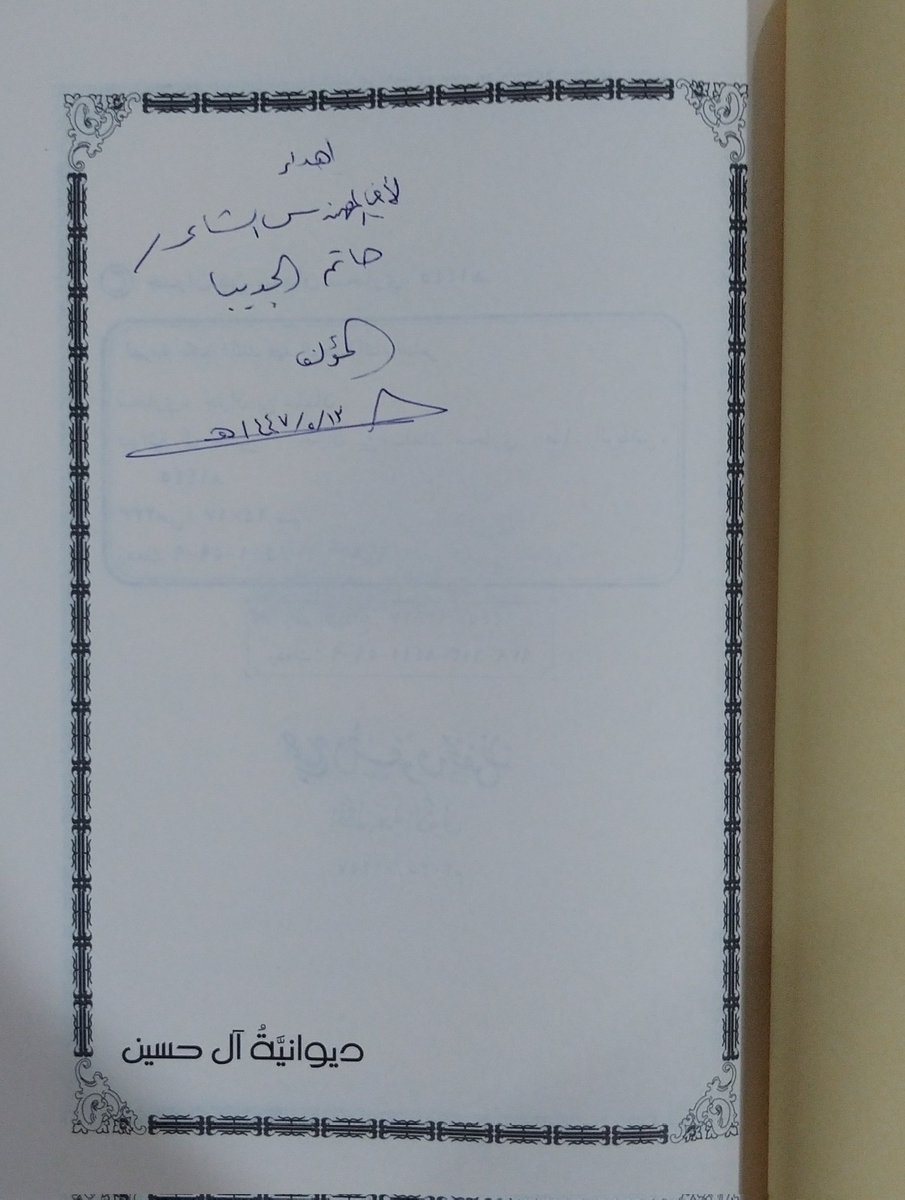 اهداء
لأخي المهندس الشاعر /
حاتم الجديبا
المؤلف
١٤٤٧/٥/١٢هـ
ديوانيَّةُ آل حسين